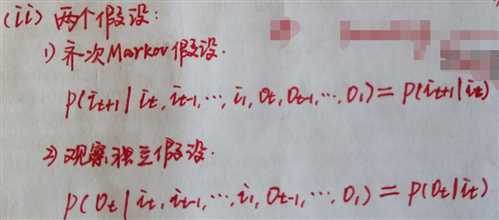 (ii) 两个假设:
1) 齐次Markov假设.
P(i_{t+1} | i_t, i_{t-1}, ..., i_1, o_t, o_{t-1}, ..., o_1) = P(i_{t+1} | i_t)
2) 观察独立假设.
P(o_t | i_t, i_{t-1}, ..., i_1, o_{t-1}, ..., o_1) = P(o_t | i_t)